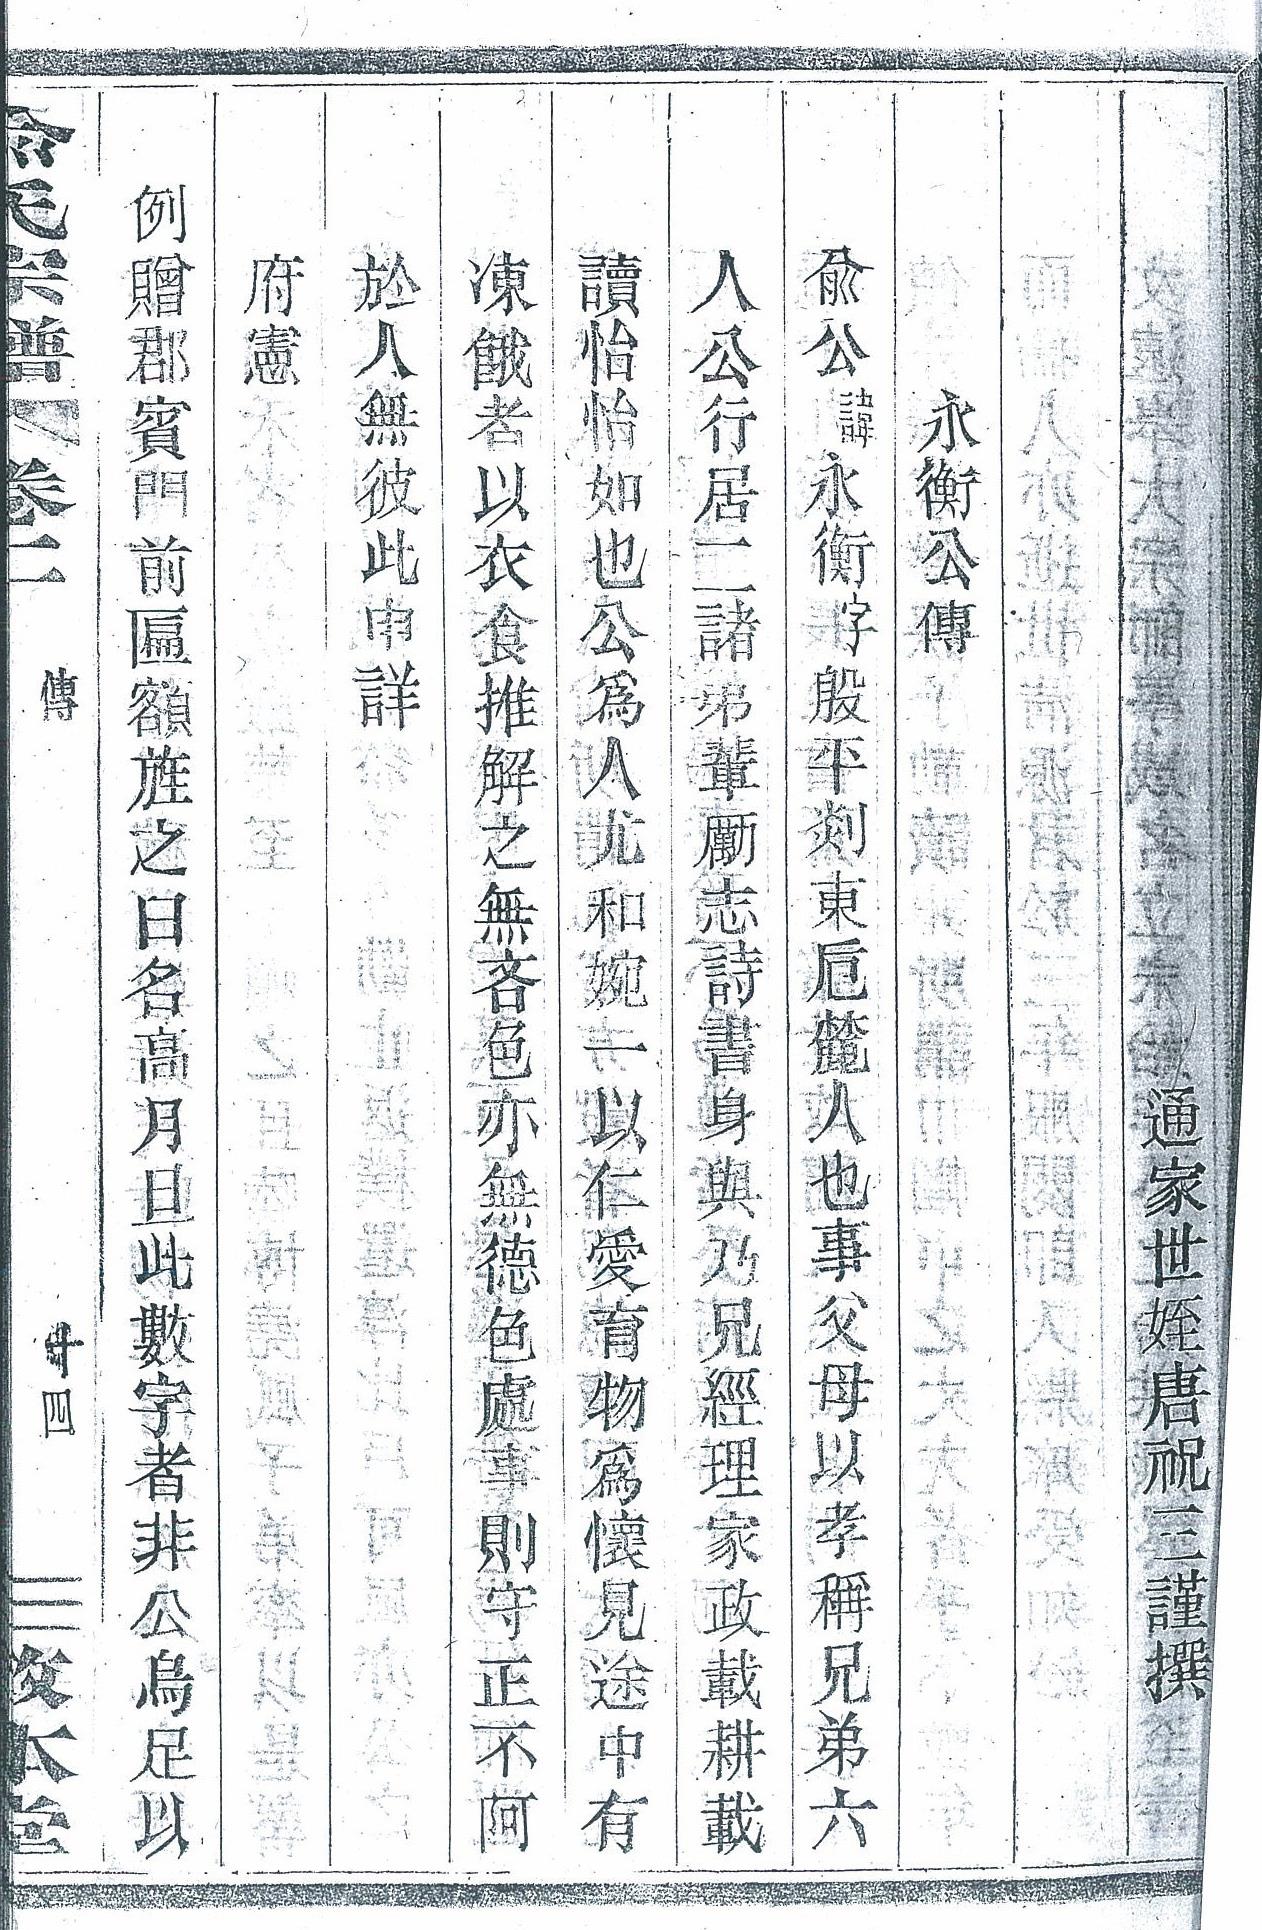 通家世姪唐祝三謹撰
永衡公傳
俞公諱永衡字殷平剡東巵麓人也事父母以孝稱兄弟六
人公行居二諸弟輩勵志詩書身與乃兄經理家政載耕載
讀怡怡如也公爲人尤和婉一以仁愛育物爲懷見途中有
凍餓者以衣食推解之無吝色亦無德色處事則守正不阿
於人無彼此申詳
府憲
例贈郡賓門前匾額旌之曰名高月旦此數字者非公烏足以
俞氏宗譜 卷二 傳 廿四 敦本堂